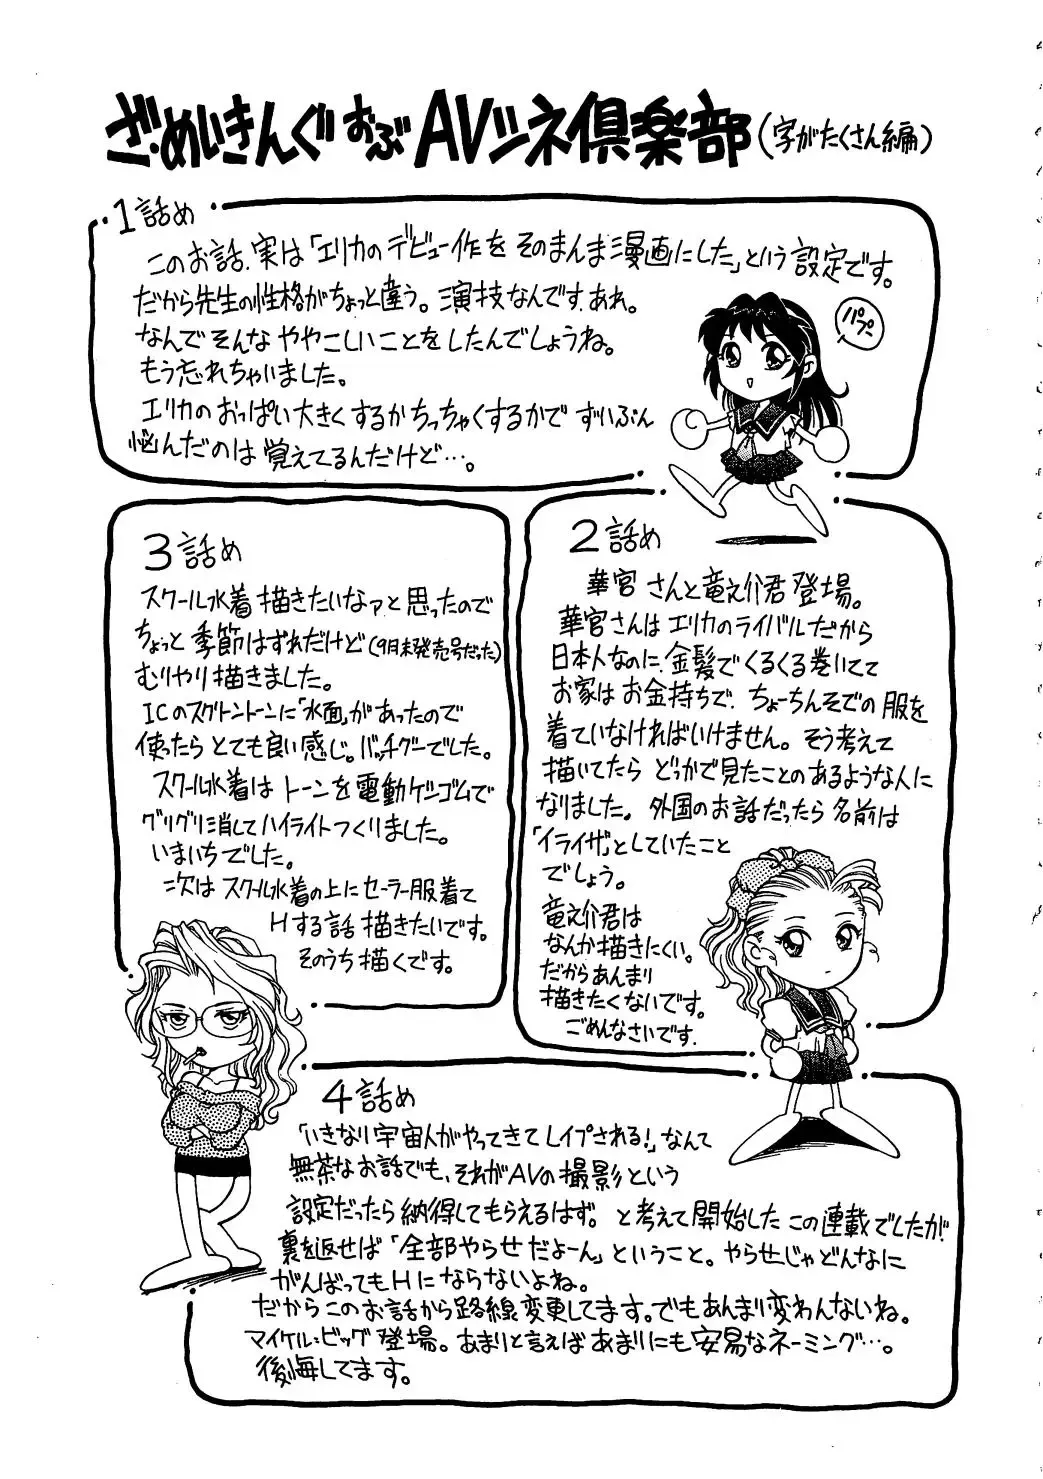 ざ・めいきんぐ おぶ AVジュネ倶楽部(字がたくさん編)
1話め
このお話、実は「エリカのデビュー作をそのまんま漫画にした」という設定です。
だから先生の性格がちょっと違う。演技なんです、あれ。
なんでそんなややこしいことをしたんでしょうね。
もう忘れちゃいました。
エリカのおっぱい大きくするかちっちゃくするかでずいぶん
悩んだのは覚えてるんだけど…。
パプ
2話め
華宮さんと竜之介君登場。
華宮さんはエリカのライバルだから
日本人なのに、金髪でくるくる巻いてて
お家はお金持ちで、ちょーちんそでの服を
着ていなければいけません。そう考えて
描いてたらどっかで見たことのあるような人に
なりました。外国のお話だったら名前は
「イライザ」としていたこと
でしょう。
竜之介君は
なんか描きにくい。
だからあんまり
描きたくないです。
ごめんなさいです。
3話め
スクール水着描きたいなァと思ったので
ちょっと季節はずれだけど(9月末発売号だった)
むりやり描きました。
ICのスクリントーンに「水面」があったので
使ったらとても良い感じ。バッチグーでした。
スクール水着はトーンを電動ケシゴムで
グリグリ消してハイライトつくりました。
いまいちでした。
次はスクール水着の上にセーラー服着て
Hする話描きたいです。
そのうち描くです。
4話め
「いきなり宇宙人がやってきてレイプされる!」なんて
無茶なお話でも、それがAVの撮影という
設定だったら納得してもらえるはず。と考えて開始したこの連載でしたが
裏を返せば「全部やらせだよーん」ということ。やらせじゃどんなに
がんばってもHにならないよね。
だからこのお話から路線変更してます。でもあんまり変わんないね。
マイケル=ビッグ登場。あまりと言えばあまりにも安易なネーミング…。
後悔してます。